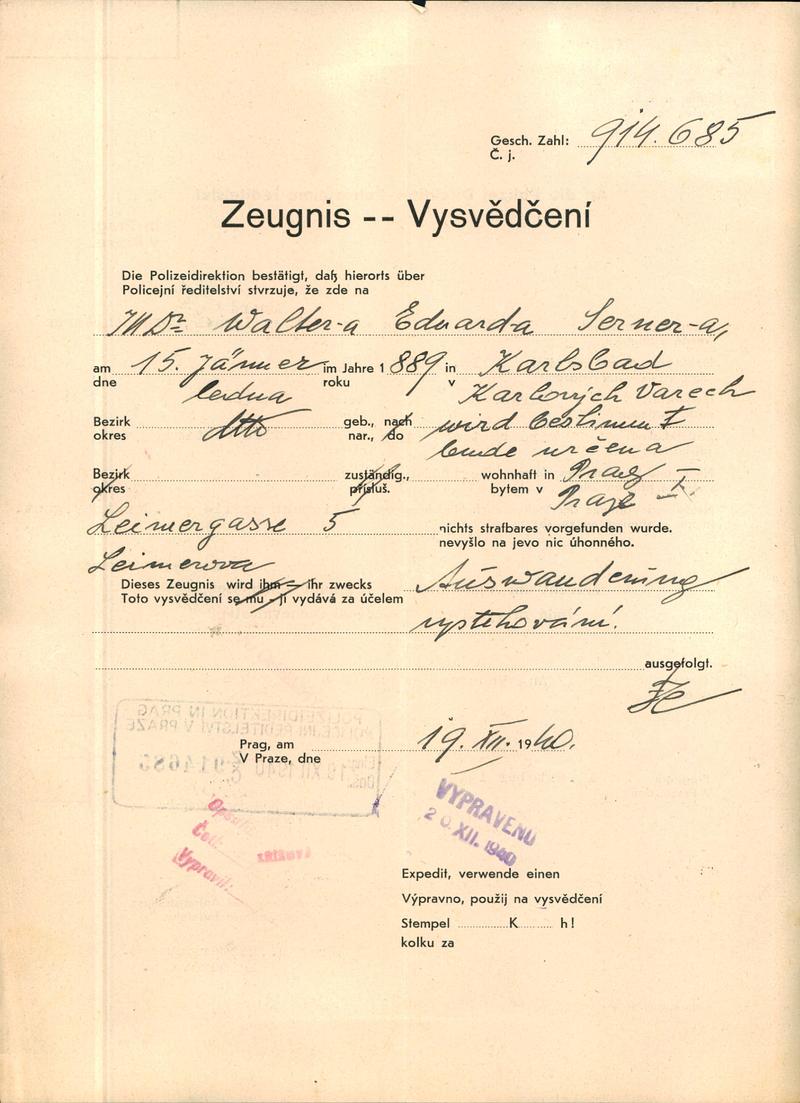 Gesch. Zahl: 914.685
Č. j.
Zeugnis -- Vysvědčení
Die Polizeidirektion bestätigt, daß hierorts über
Policejní ředitelství stvrzuje, že zde na
MDr Walter-a Eduarda Serner-a,
am 15. Jänner im Jahre 1889 in Karlsbad
dne ledna roku v Karlových Varech
Bezirk dtto geb., nach wird bestimmt
okres nar., do bude určena
Bezirk zuständig., wohnhaft in Prag I
okres přísluš. bytem v Praze I.
Leimergasse 5 nichts strafbares vorgefunden wurde.
nevyšlo na jevo nic úhonného.
Leimerova
Dieses Zeugnis wird ihm - ihr zwecks Auswanderung
Toto vysvědčení se mu - jí vydává za účelem
vystěhování.
ausgefolgt.
POLIZEIDIREKTION IN PRAG
POLICEJNÍ ŘEDITELSTVÍ V PRAZE
Prag, am 19. XII. 1940.
V Praze, dne
19 XII 1940
914685
VYPRAVENO
20. XII. 1940
Opsal:
Četl:
Vypravil:
Expedit, verwende einen
Výpravno, použij na vysvědčení
Stempel K h!
kolku za